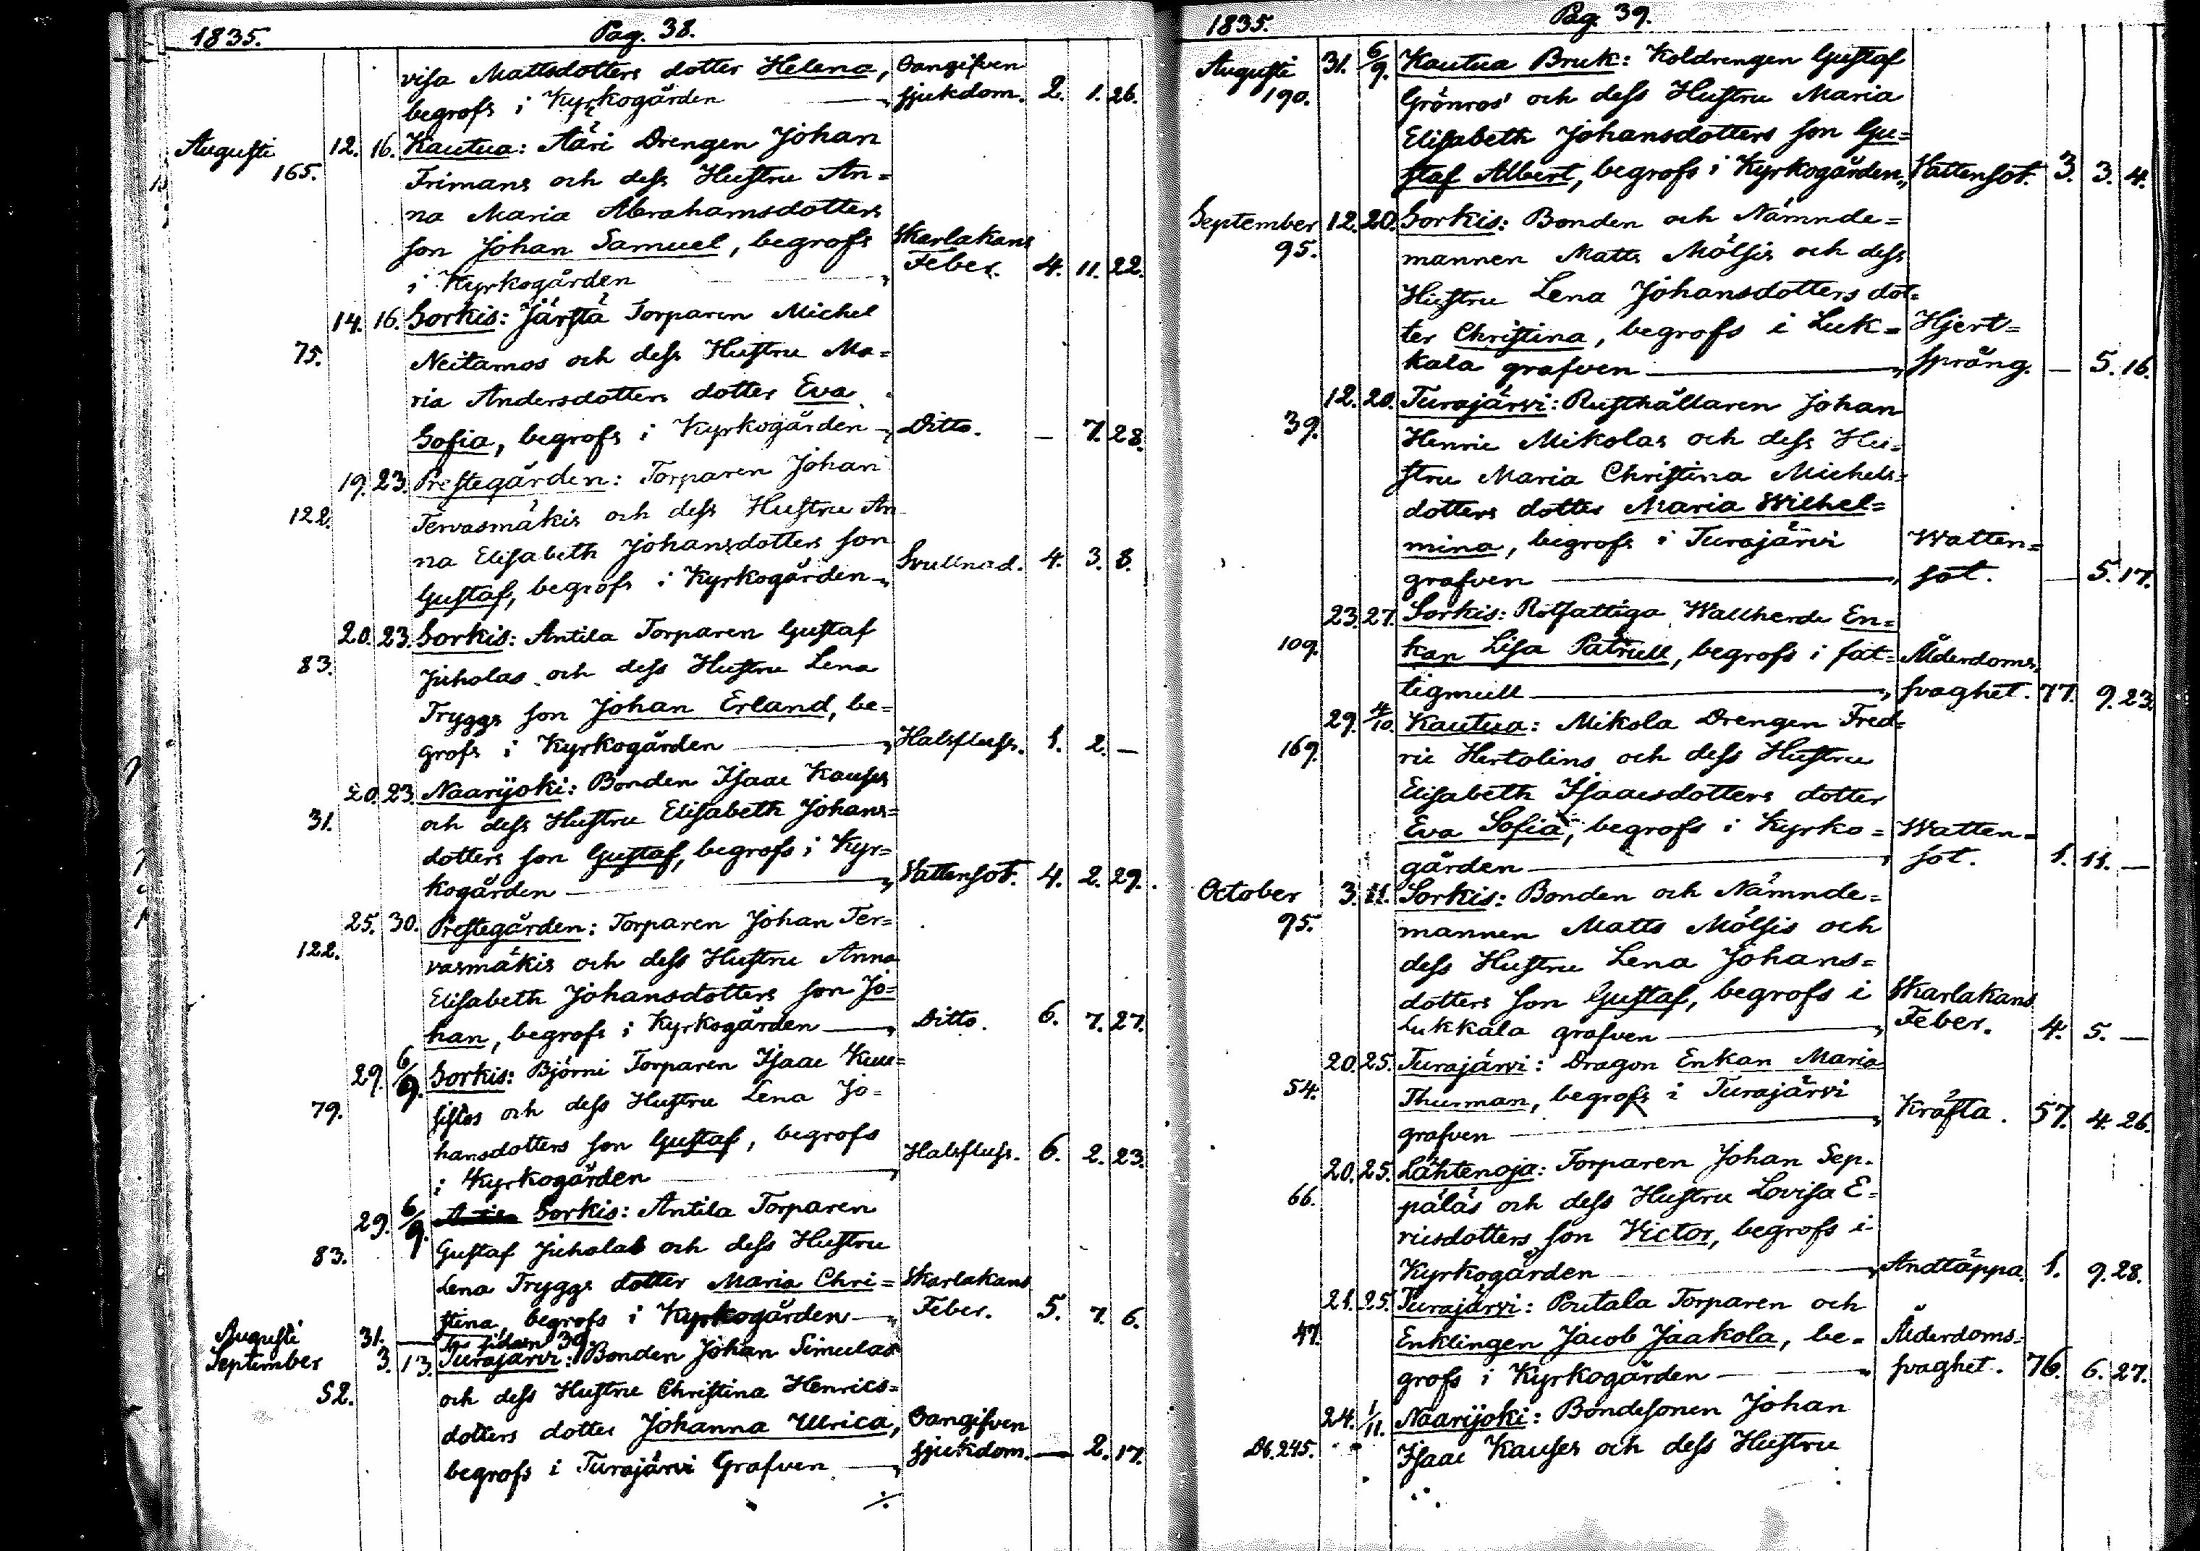 1835. Pag. 38.
visa Mattsdotters dotter Helena, Oangifven
begrofs i Kyrkogården — sjukdom. 2. 1. 26.
Augusti 12. 16. Kautua: Ääri Drengen Johan
165. Frimans och dess Hustru An=
na Maria Abrahamsdotters
son Johan Samuel, begrofs Skarlakans
i Kyrkogården Feber. 4. 11. 22.
14. 16. Sorkis: Järstä Torparen Michel
75. Neitamos och dess Hustru Ma=
ria Andersdotters dotter Eva
Sofia, begrofs i Kyrkogården Ditto. — 7. 28.
19. 23. Prestegården: Torparen Johan
122. Tervasmäkis och dess Hustru An
na Elisabeth Johansdotters son
Gustaf, begrofs i Kyrkogården Svullnad. 4. 3. 8.
20. 23. Sorkis: Antila Torparen Gustaf
83. Juholas och dess Hustru Lena
Tryggs son Johan Erland, be=
grofs i Kyrkogården — Halsfluss. 1. 2. —
20. 23. Naarijoki: Bonden Isaac Kauses
31. och dess Hustru Elisabeth Johans=
dotters son Gustaf, begrofs i Kyr=
kogården — Vattensot. 4. 2. 29.
25. 30. Prestegården: Torparen Johan Ter=
122. vasmäkis och dess Hustru Anna
Elisabeth Johansdotters son Jo=
han, begrofs i Kyrkogården — Ditto. 6. 7. 27.
29. 6/9. Sorkis: Björni Torparen Isaac Kuu=
79. sistos och dess Hustru Lena Jo=
hansdotters son Gustaf, begrofs
i Kyrkogården Halsfluss. 6. 2. 23.
29. 6/9. Sorkis: Antila Torparen
83. Gustaf Juholas och dess Hustru
Lena Tryggs dotter Maria Chri= Skarlakans
stina, begrofs i Kyrkogården — Feber. 5. 7. 6.
Augusti 31. — 39.
September 3. 13. Turajärvi: Bonden Johan Simulas
52. och dess Hustru Christina Henrics=
dotters dotter Johanna Ulrica, Oangifven
begrofs i Turajärvi Grafven — sjukdom. — 2. 17.
1835. Pag. 39.
Augusti 31. 6/9. Kautua Bruk: Koldrengen Gustaf
190. Grönros' och dess Hustru Maria
Elisabeth Johansdotters son Gu=
staf Albert, begrofs i Kyrkogården, Vattensot. 3. 3. 4.
September 12. 20. Sorkis: Bonden och Nämnde=
95. mannen Matts Mölsis och dess
Hustru Lena Johansdotters dot=
ter Christina, begrofs i Luk= Hjert=
kala grafven — språng. — 5. 16.
12. 20. Turajärvi: Rusthållaren Johan
39. Henric Mikolas och dess Hu=
stru Maria Christina Michels=
dotters dotter Maria Wilhel=
mina, begrofs i Turajärvi Watten=
grafven — sot. — 5. 17.
23. 27. Sorkis: Rotfattiga Wallherde En=
109. kan Lisa Patrull, begrofs i fat= Ålderdoms
tigmull — svaghet. 77. 9. 23.
29. 4/10. Kautua: Mikola Drengen Fred=
169. ric Hertolins och dess Hustru
Elisabeth Isaacsdotters dotter
Eva Sofia, begrofs i Kyrko= Watten=
gården — sot. 1. 11. —
October 3. 11. Sorkis: Bonden och Nämnde=
95. mannen Matts Mölsis och
dess Hustru Lena Johans=
dotters son Gustaf, begrofs i Skarlakans
Lukkala grafven — Feber. 4. 5. —
20. 25. Turajärvi: Dragon Enkan Maria
54. Thurman, begrofs i Turajärvi
grafven — Kräfta. 57. 4. 26.
20. 25. Lähtenoja: Torparen Johan Sep.
66. päläs och dess Hustru Lovisa E=
ricsdotters son Victor, begrofs i
Kyrkogården — Andtäppa. 1. 9. 28.
21. 25. Turajärvi: Poutala Torparen och
47. Enklingen Jacob Jaakola, be= Ålderdoms=
grofs i Kyrkogården — svaghet. 76. 6. 27.
24. 1/11. Naarijoki: Bondesonen Johan
Db. 245. Isaac Kauses och dess Hustru